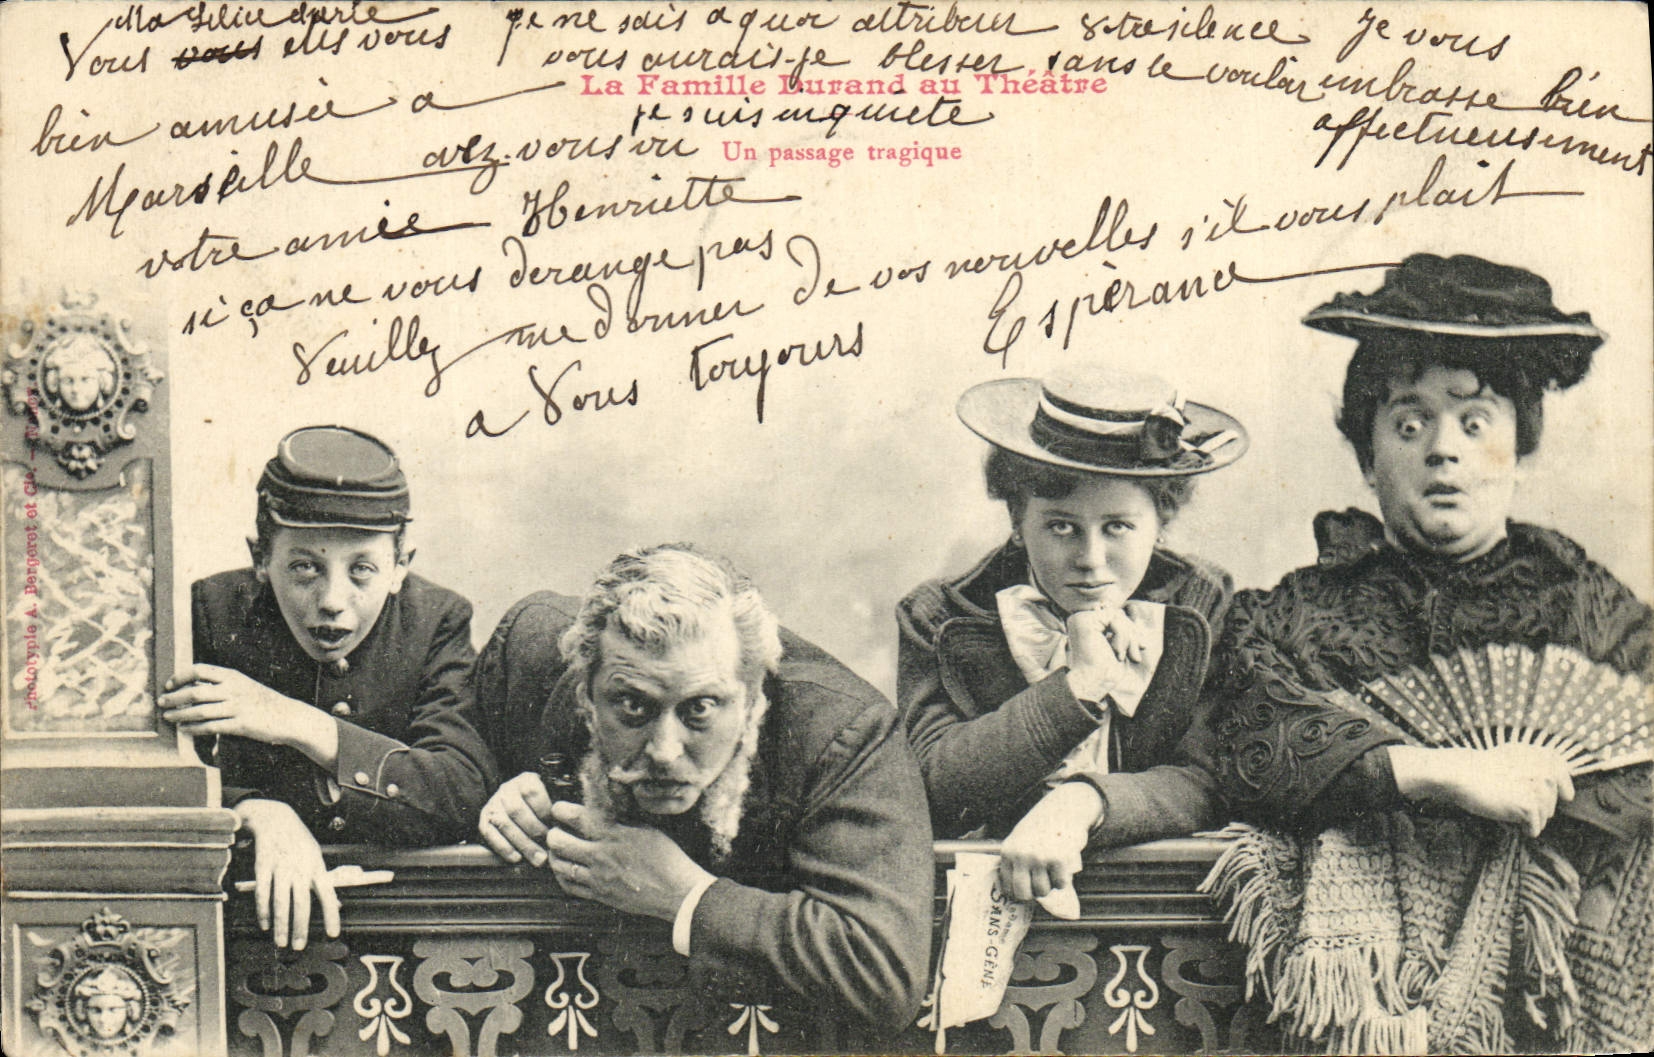 Ma
Vous vous etes vous
bien amusée a
Marseille avez-vous vu
votre amie Henriette
si ça ne vous derange pas
Veuillez me donner de vos nouvelles s'il vous plait
a Vous toujours Espérance
Je ne sais a quoi attribuer Votre silence
vous aurais-je blesser sans le vouloir
je suis inquiete
Je vous
embrasse bien
affectueusement
La Famille Durand au Théâtre
Un passage tragique
Phototypie A. Bergeret et Cie. - Nancy
SANS-GÊNE